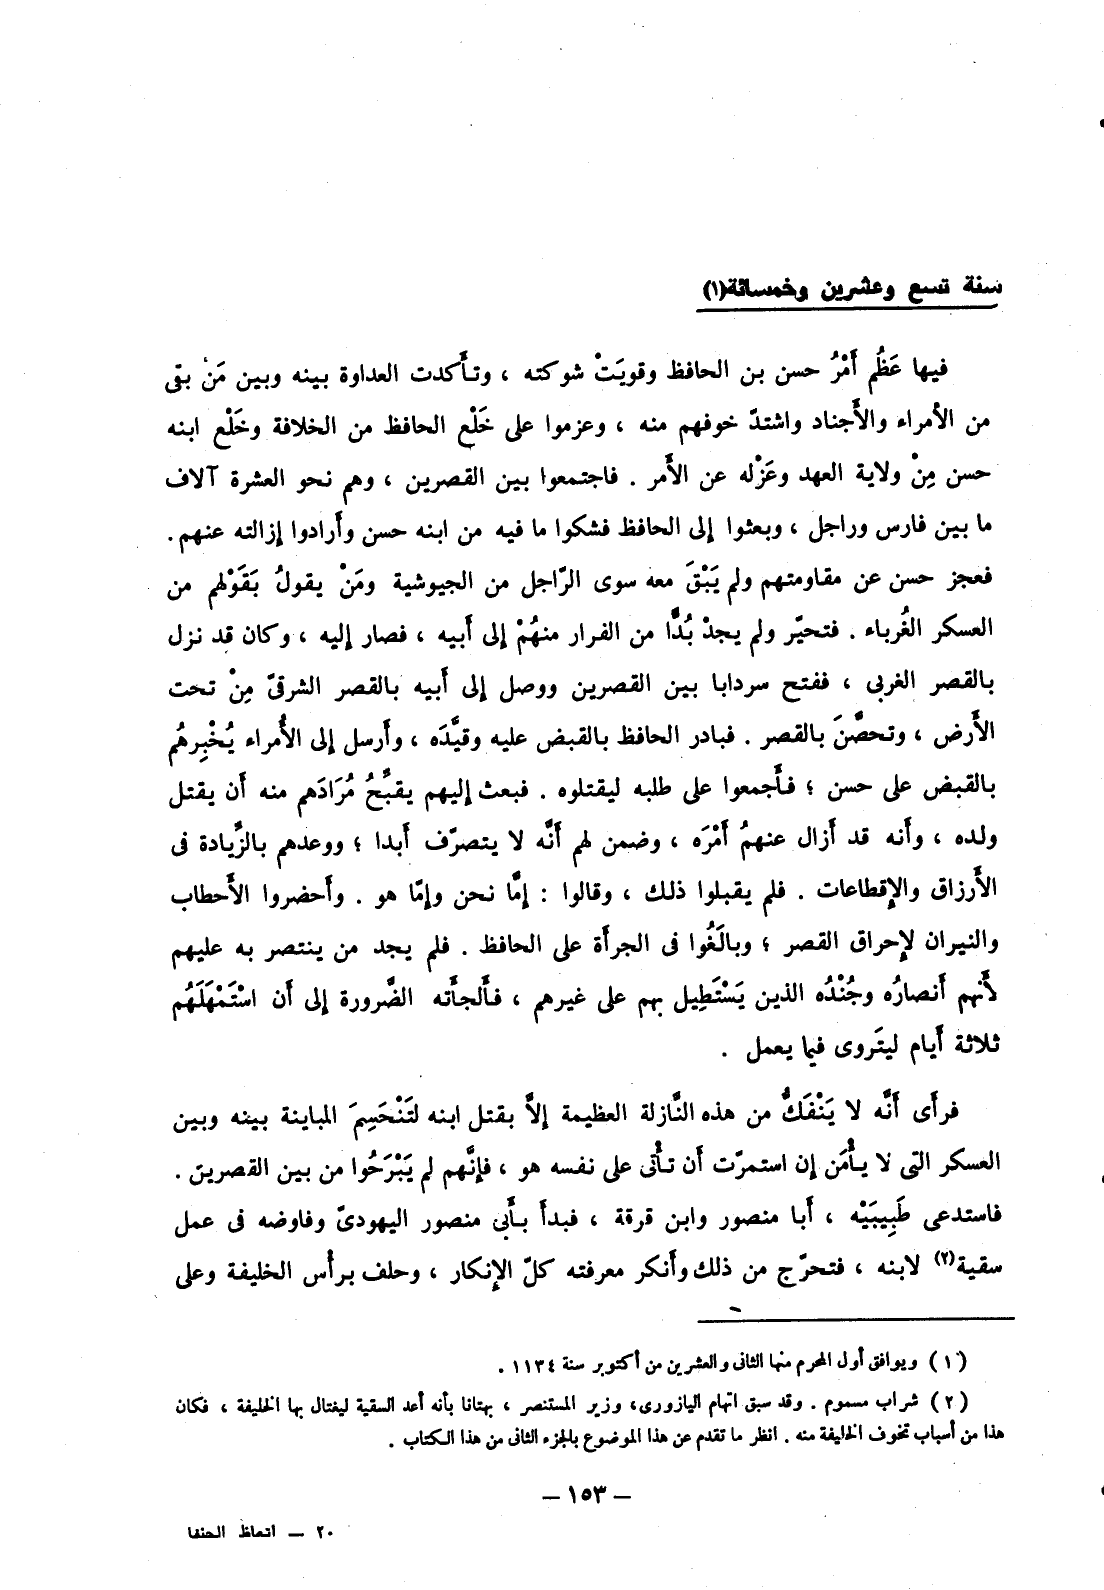 سنة تسع وعشرين وخمسمائة(١)
فيها عَظُم أَمْرُ حسن بن الحافظ وقويَتْ شوكته ، وتأَكدت العداوة بينه وبين مَنْ بقى
من الأمراء والأَجناد واشتدّ خوفهم منه ، وعزموا على خَلْع الحافظ من الخلافة وخَلْع ابنه
حسن مِنْ ولاية العهد وعَزْله عن الأَمر . فاجتمعوا بين القصرين ، وهم نحو العشرة آلاف
ما بين فارس وراجل ، وبعثوا إلى الحافظ فشكوا ما فيه من ابنه حسن وأَرادوا إزالته عنهم .
فعجز حسن عن مقاومتهم ولم يَبْقَ معه سوى الرّاجل من الجيوشية ومَنْ يقولُ بَقَوْلهم من
العسكر الغُرباء . فتحيّر ولم يجدْ بُدًّا من الفرار منهُمْ إلى أَبيه ، فصار إليه ، وكان قد نزل
بالقصر الغربى ، ففتح سردابا بين القصرين ووصل إلى أَبيه بالقصر الشرقىّ مِنْ تحت
الأَرض ، وتحصَّنَ بالقصر . فبادر الحافظ بالقبض عليه وقيَّدَه ، وأَرسل إلى الأُمراء يُخْبِرهُم
بالقبض على حسن ؛ فأَجمعوا على طلبه ليقتلوه . فبعث إليهم يقبِّحُ مُرَادَهم منه أَن يقتل
ولده ، وأَنه قد أَزال عنهمُ أَمْرَه ، وضمن لهم أَنَّه لا يتصرّف أَبدا ؛ ووعدهم بالزِّيادة فى
الأَرزاق والإِقطاعات . فلم يقبلوا ذلك ، وقالوا : إمَّا نحن وإمّا هو . وأَحضروا الأَحطاب
والنيران لإِحراق القصر ؛ وبالَغُوا فى الجرأَة على الحافظ . فلم يجد من ينتصر به عليهم
لأَنهم أَنصارُه وجُنْدُه الذين يَسْتَطِيل بهم على غيرهم ، فأَلجأَته الضَّرورة إلى أَن اسْتَمْهَلَهُم
ثلاثة أَيام ليتَروى فيما يعمل .
فرأَى أَنَّه لا يَنْفَكُّ من هذه النَّازلة العظيمة إلاَّ بقتل ابنه لتَنْحَسِمَ المباينة بينه وبين
العسكر التى لا يأْمَن إن استمرّت أَن تأْتى على نفسه هو ، فإنَّهم لم يَبْرَحُوا من بين القصرين .
فاستدعى طَبِيبَيْه ، أَبا منصور وابن قرقة ، فبدأَ بأَبى منصور اليهودىّ وفاوضه فى عمل
سقية(٢) لابنه ، فتحرّج من ذلك وأَنكر معرفته كلّ الإنكار ، وحلف برأْس الخليفة وعلى
(١) ويوافق أول المحرم منها الثانى والعشرين من أكتوبر سنة ١١٣٤ .
(٢) شراب مسموم . وقد سبق اتهام اليازورى، وزير المستنصر ، بهتانا بأنه أعد السقية ليغتال بها الخليفة ، فكان
هذا من أسباب تخوف الخليفة منه . انظر ما تقدم عن هذا الموضوع بالجزء الثانى من هذا الكتاب .
— ١٥٣ —
٢٠ — اتعاظ الحنفا